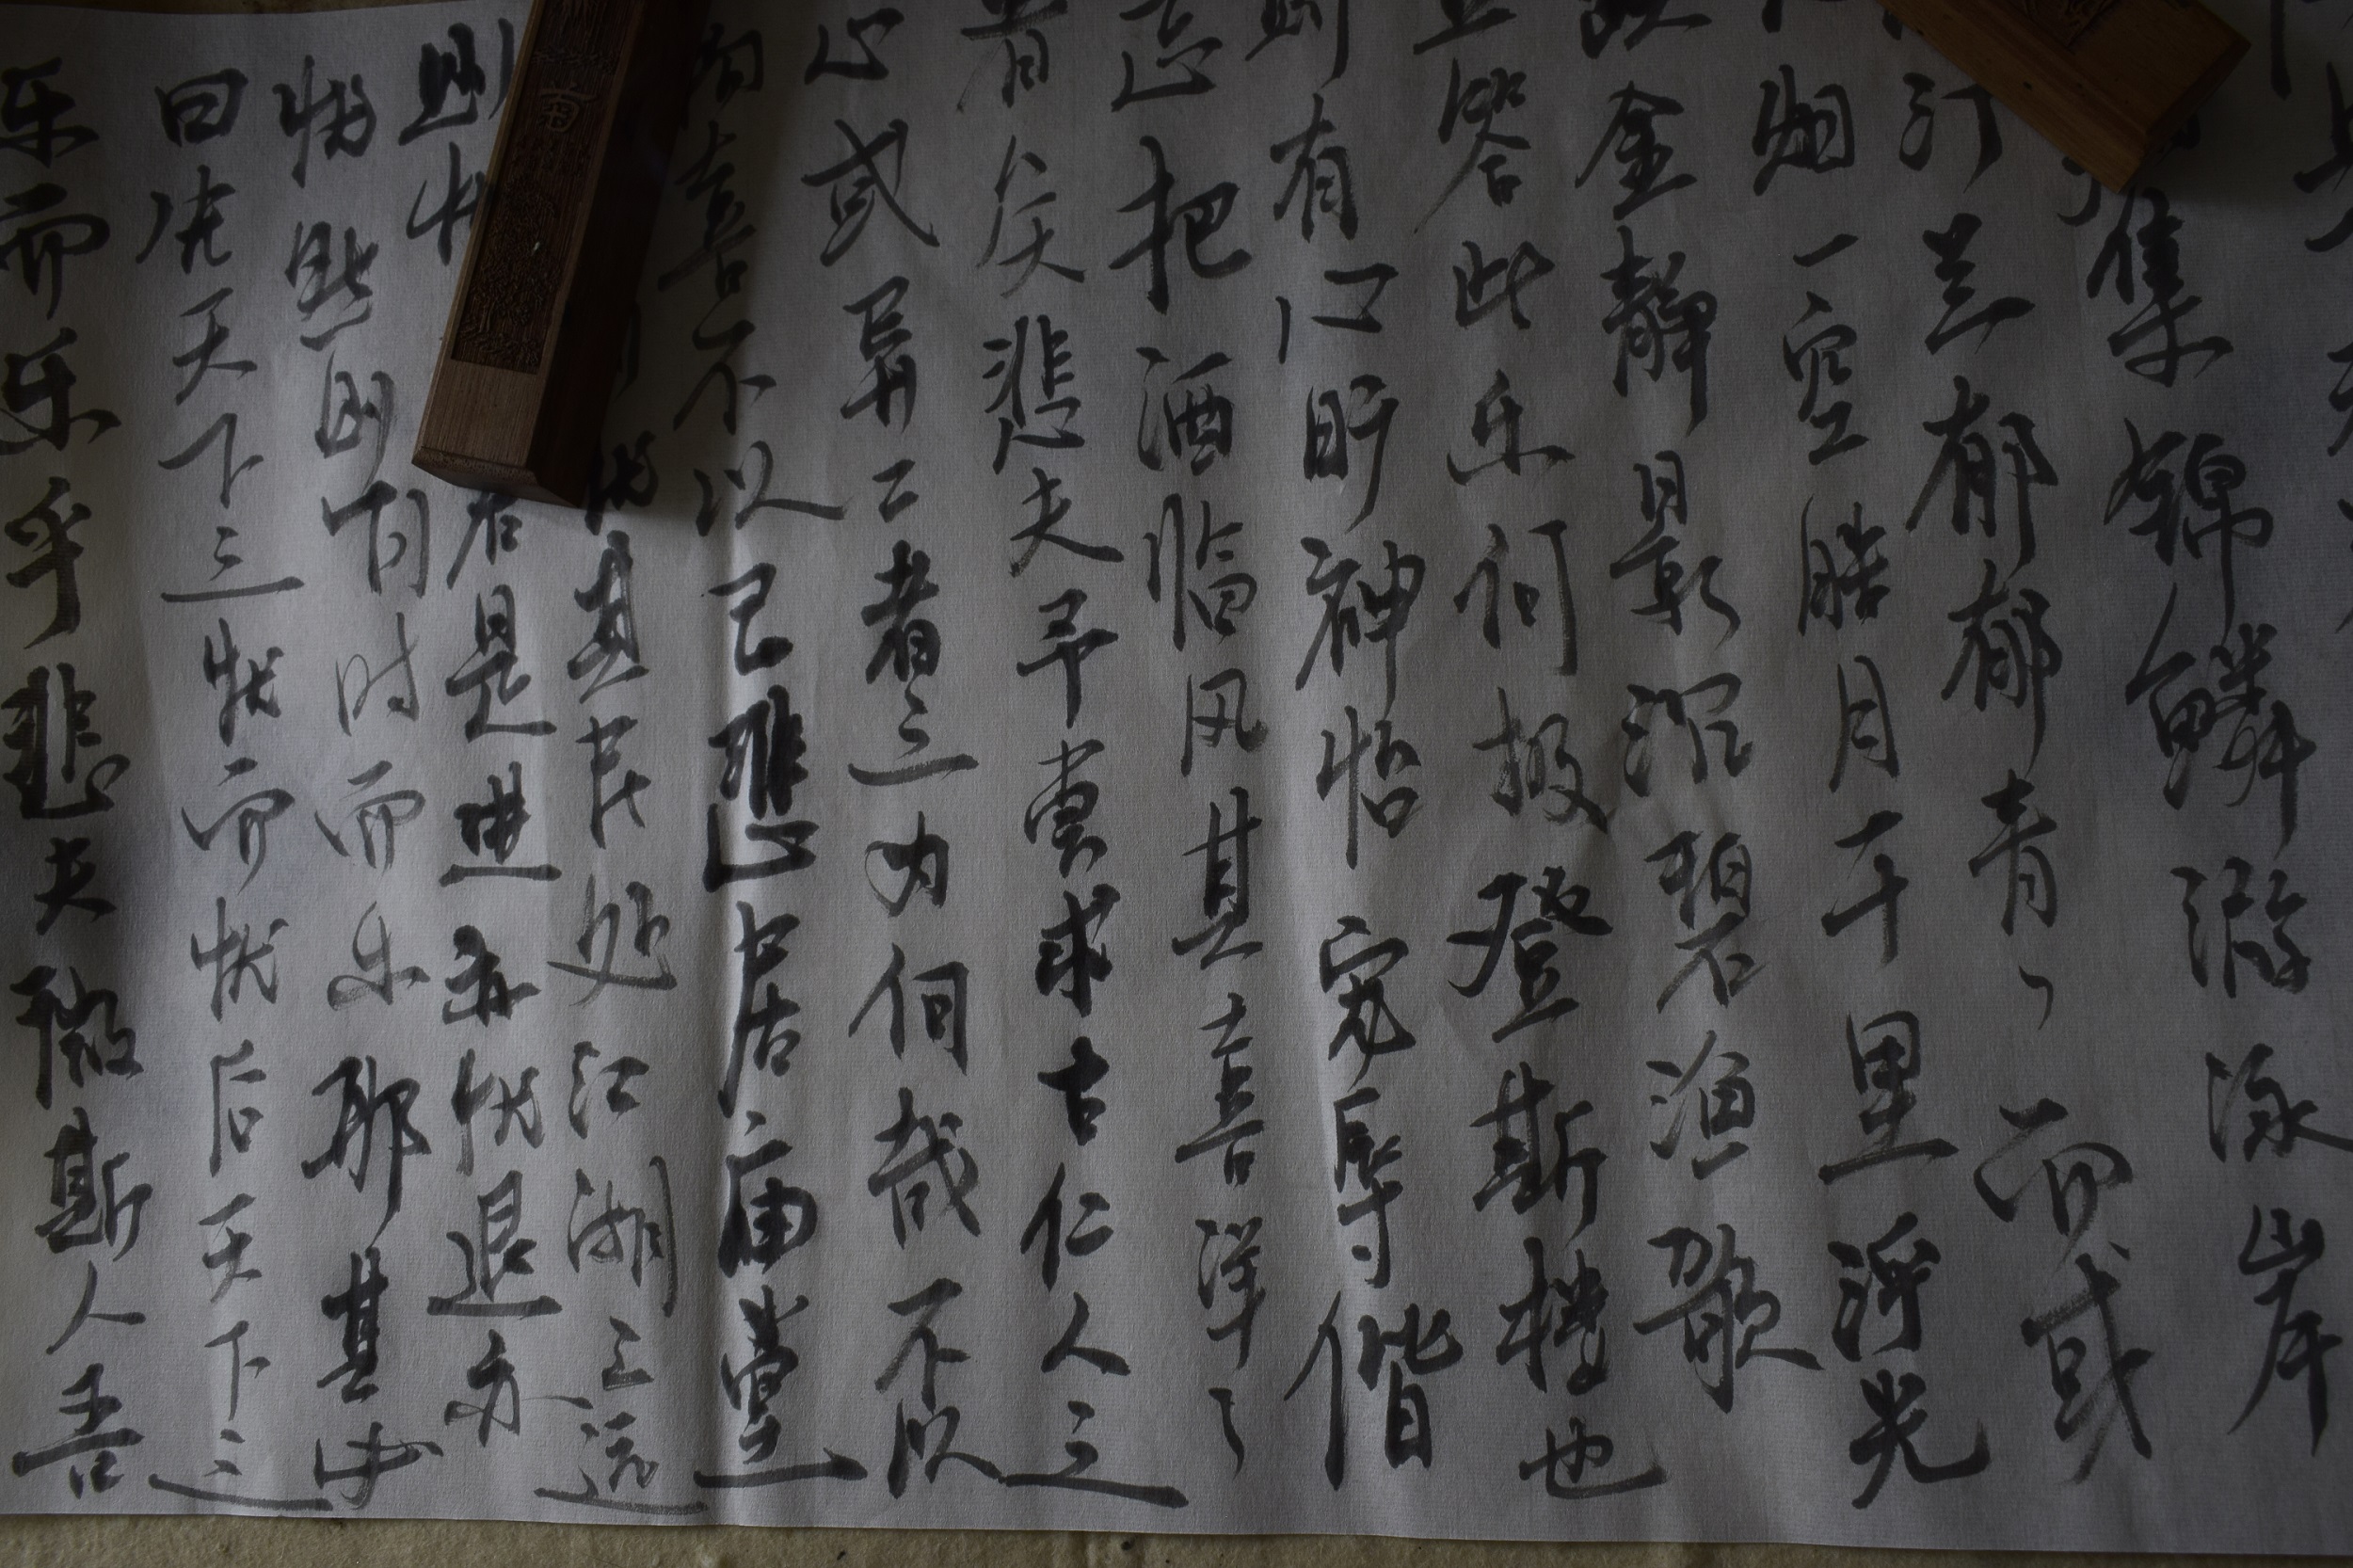 集锦鳞游泳岸
汀兰郁郁青々而或
烟一空皓月千里浮光
跃金静影沉碧渔歌
互答此乐何极登斯楼也
则有心旷神怡宠辱偕
忘把酒临风其喜洋々
者矣悲夫予尝求古仁人之
心或异二者之为何哉不以
物喜不以己悲居庙堂
忧其民处江湖之远
则忧君是进亦忧退亦
忧然则何时而乐耶其必
曰先天下之忧而忧后天下之
乐而乐乎悲夫微斯人吾